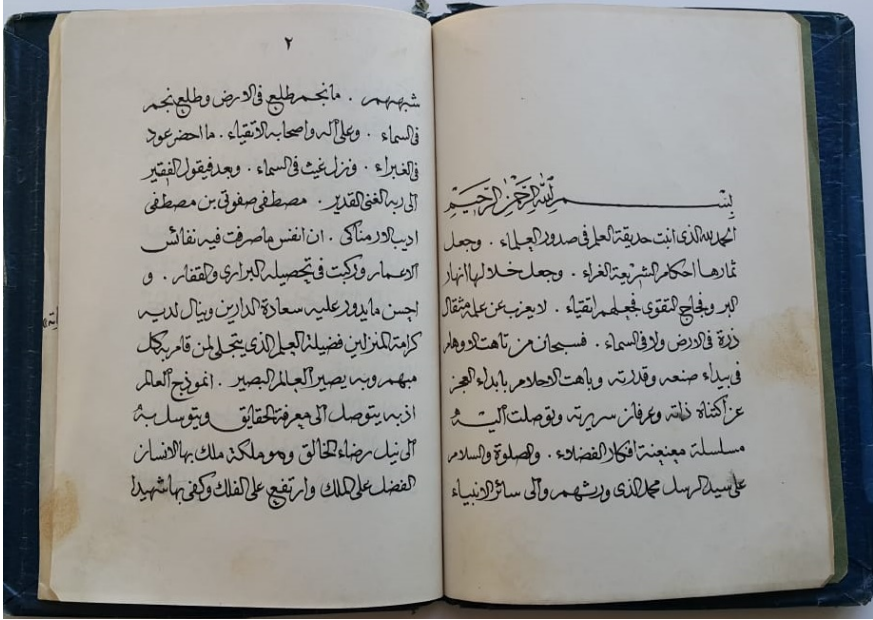 بِسْمِ اللهِ الرَّحْمٰنِ الرَّحِيْمِ
الحمد لله الذى انبت حديقة العلم فى صدور العلماء . وجعل
ثمارها احكام الشريعة الغراء . وجعل خلالها انهار
البر وفجاج التقوى فجعلهم اتقياء . لا يعزب عن علمه مثقال
ذرة فى الارض ولا فى السماء . فسبحان من تاهت الاوهام
فى بيداء صنعه وقدرته وباهت الاحلام بابداء العجز
عن اكتناه ذاته وعرفان سريرته وتوصلت اليه
مسلسلة معنعنة افكار الفضلاء . والصلوة والسلام
على سيد الرسل محمد الذى ورثهم والى سائر الانبياء
٢
شبههم . ما نجم طلع فى الارض وطلع نجم
فى السماء . وعلى آله واصحابه الاتقياء . ما احضر عود
فى الغبراء . ونزل غيث فى السماء . وبعد فيقول الفقير
الى ربه الغنى القدير . مصطفى صفوتى بن مصطفى
اديب الاورمناكى . ان انفس ما صرفت فيه نفائس
الاعمار وركبت فى تحصيله البرارى والقفار . و
احسن ما يدور عليه سعادة الدارين وينال لديه
كرامة المنزلين فضيلة العلم الذى يتجلى لمن قام به كل
مبهم وبه يصير العالم البصير . انموذج العالم
اذ به يتوصل الى معرفة الحقايق ويتوسل به
الى نيل رضاء الخالق وهو ملكة ملك بها الانسان
الفضل على الملك وارتفع على الفلك وكفى بها شهيدا